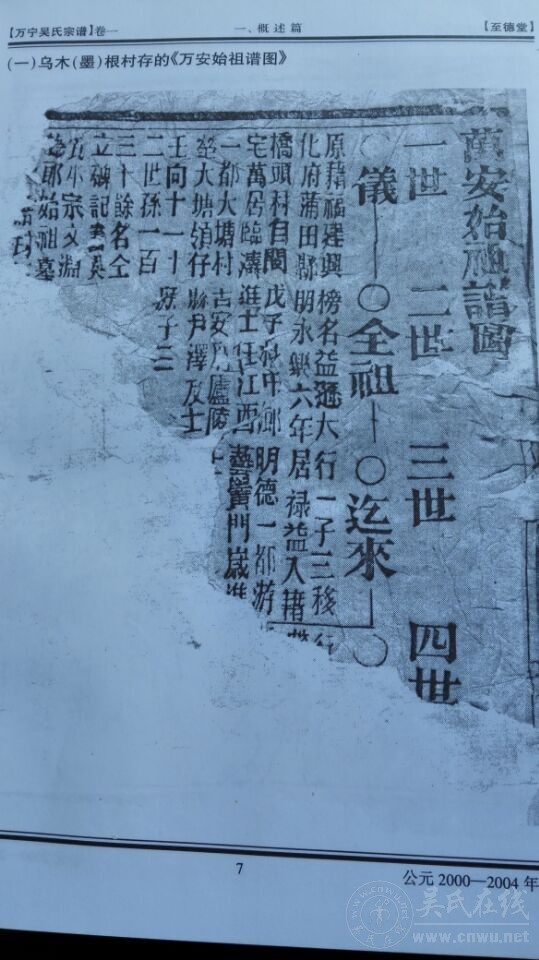 【万宁吴氏宗谱】卷一
一、概述篇
【至德堂】
(一)乌木(墨)根村存的《万安始祖谱图》
萬安始祖譜圖
一世 二世 三世 四世
儀 全祖 迄來
原籍福建興 榜名益遜大行一子三移行
化府蒲田縣 明永樂六年居禄益入籍
橋頭村自閩 戊子科中鄉 明德一都游
宅萬居臨溱 進士任江西 門歲進
一都大塘村 吉安府廬陵
大塘領仔 縣尹澤及士
壬向十一十 子三
二世孫一百
三十餘名仝
立碑記
宗文淵
始祖墓
7
公元2000—2004年
吴氏在线
www.cnwu.net